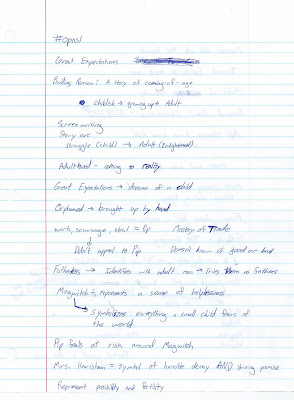 #opnsl
Great Expectations
Building Roman: A story of coming-of-age
childish → growing up → Adult
Screen writing
Story arc
struggle (child) → Adult (Enlightened)
Adulthood - coming to reality
Great Expectations → dreams of a child
Orphaned → brought up by hand
work, scavenge, steal = Up Mastery of Trade
Didn't appeal to Pip Doesn't know if good or bad
Fatherless → Identifies with adult men → Tries them as Fathers
Magwitch = represents a sense of helplessness
→ Symbolizes everything a small child fears of
the world
Pip feels at risk around Magwitch
Mrs. Havisham = symbol of horrible decay AND shining promise
Represent possibility and fertility